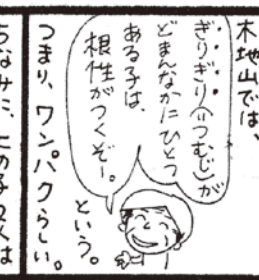 木地山では、
ぎりぎり(つむじ)が
どまんなかにひとつ
ある子は、
根性がつくぞー。
という。
つまり、ワンパクらしい。
ちなみに、この子2人は